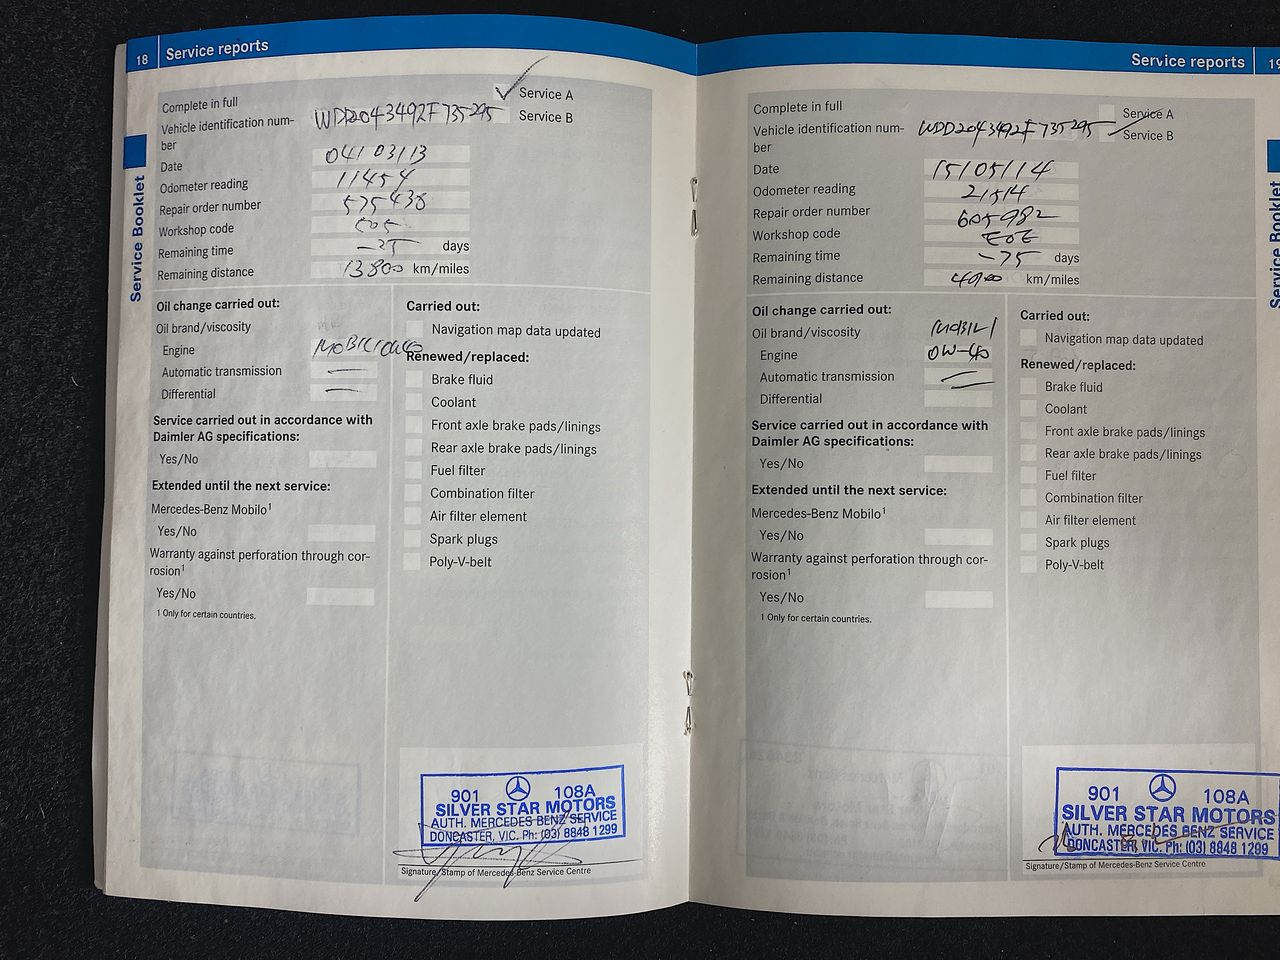 18 Service reports
Service Booklet
Complete in full
Service A
Vehicle identification num-
ber
WDD2043492F735295
Service B
Date 04/03/13
Odometer reading 11454
Repair order number 575438
Workshop code
Remaining time -25 days
Remaining distance 13800 km/miles
Oil change carried out:
Oil brand/viscosity
Engine MOBIL1 0W40
Automatic transmission —
Differential —
Service carried out in accordance with
Daimler AG specifications:
Yes/No
Extended until the next service:
Mercedes-Benz Mobilo1
Yes/No
Warranty against perforation through cor-
rosion1
Yes/No
1 Only for certain countries.
Carried out:
Navigation map data updated
Renewed/replaced:
Brake fluid
Coolant
Front axle brake pads/linings
Rear axle brake pads/linings
Fuel filter
Combination filter
Air filter element
Spark plugs
Poly-V-belt
901 108A
SILVER STAR MOTORS
AUTH. MERCEDES BENZ SERVICE
DONCASTER, VIC. Ph: (03) 8848 1299
Signature/Stamp of Mercedes-Benz Service Centre
Service reports 19
Service Booklet
Complete in full
Service A
Vehicle identification num-
ber
WDD2043492F735295
Service B
Date 15/05/14
Odometer reading 21514
Repair order number 605982
Workshop code
Remaining time -75 days
Remaining distance 4900 km/miles
Oil change carried out:
Oil brand/viscosity MOBIL1
Engine 0W-40
Automatic transmission —
Differential
Service carried out in accordance with
Daimler AG specifications:
Yes/No
Extended until the next service:
Mercedes-Benz Mobilo1
Yes/No
Warranty against perforation through cor-
rosion1
Yes/No
1 Only for certain countries.
Carried out:
Navigation map data updated
Renewed/replaced:
Brake fluid
Coolant
Front axle brake pads/linings
Rear axle brake pads/linings
Fuel filter
Combination filter
Air filter element
Spark plugs
Poly-V-belt
901 108A
SILVER STAR MOTORS
AUTH. MERCEDES BENZ SERVICE
DONCASTER, VIC. Ph: (03) 8848 1299
Signature/Stamp of Mercedes-Benz Service Centre